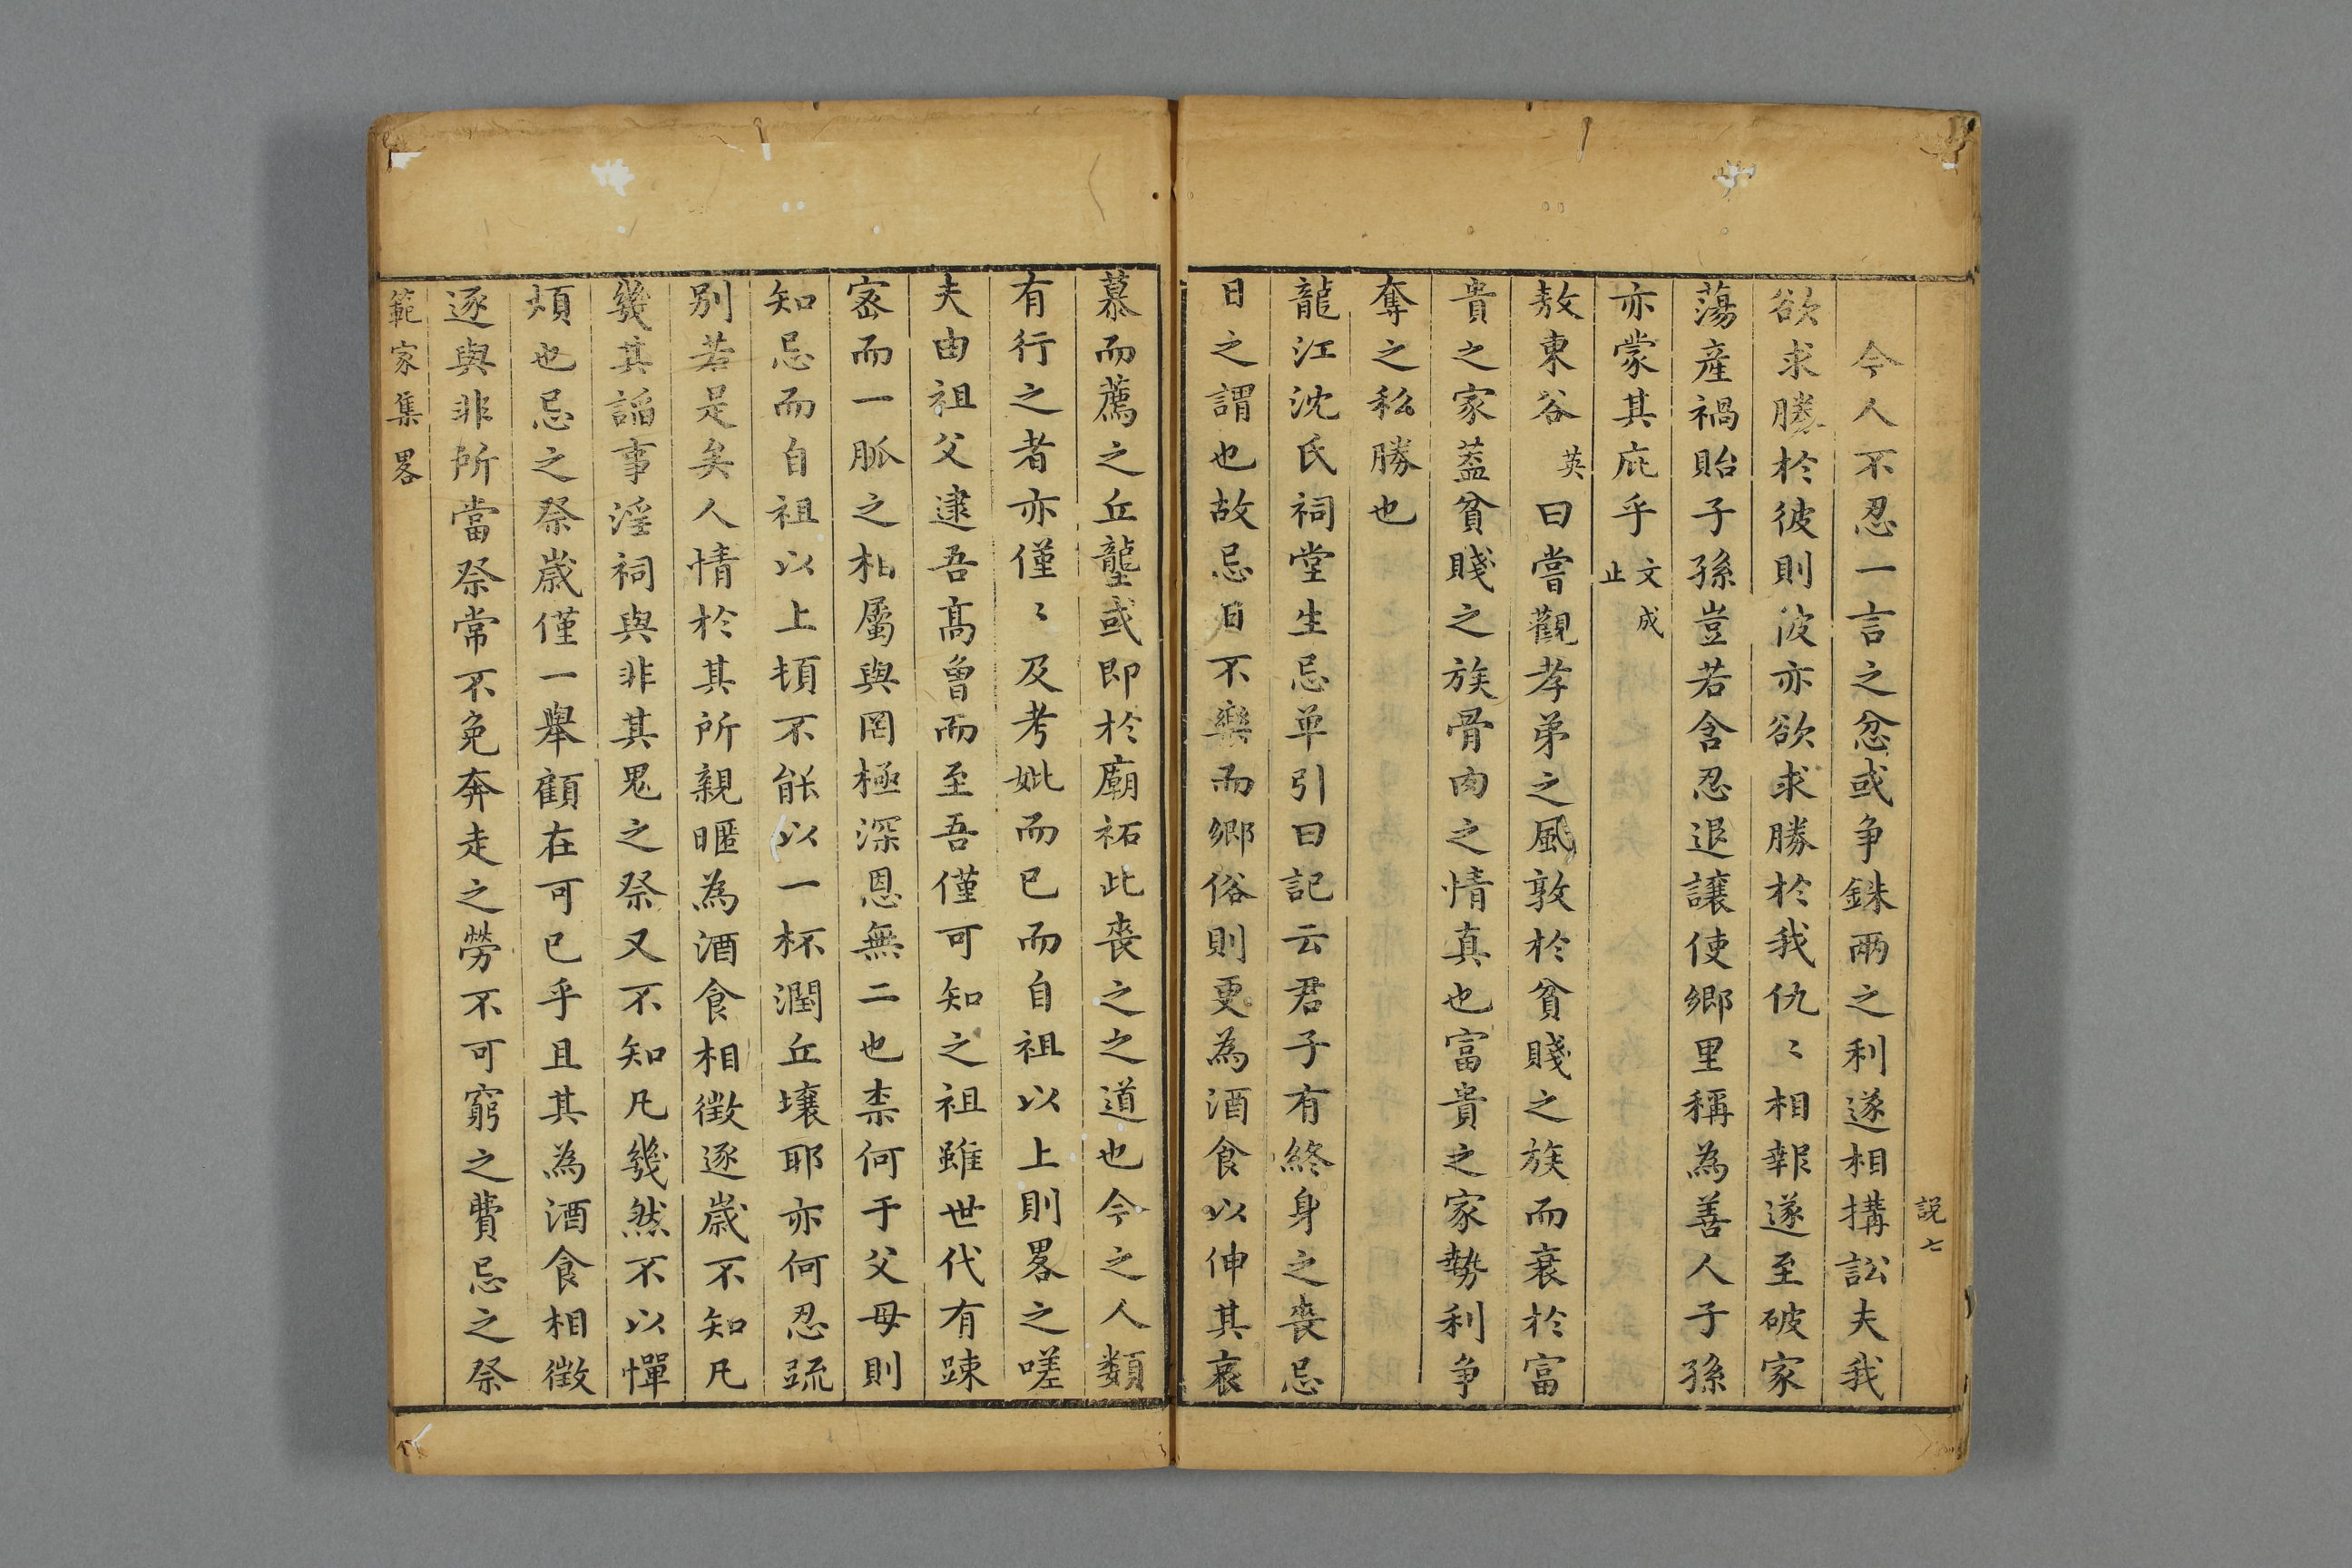 説七
今人不忍一言之忿或爭銖兩之利遂相搆訟夫我
欲求勝於彼則彼亦欲求勝於我仇〻相報遂至破家
蕩產禍貽子孫豈若含忍退讓使鄉里稱為善人子孫
亦蒙其庇乎文成止
敖東谷英曰嘗觀孝弟之風敦於貧賤之族而衰於富
貴之家葢貧賤之族骨肉之情真也富貴之家勢利爭
奪之私勝也
龍江沈氏祠堂生忌单引曰記云君子有終身之喪忌
日之謂也故忌日不樂而鄉俗則更為酒食以伸其哀
慕而薦之丘壟或即於廟祏此喪之之道也今之人類
有行之者亦僅〻及考妣而已而自祖以上則畧之嗟
夫由祖父逮吾高曾而至吾僅可知之祖雖世代有踈
宻而一脈之相屬與罔極深恩無二也柰何于父母則
知忌而自祖以上頓不能以一杯潤丘壤耶亦何忍䟽
別若是矣人情於其所親暱為酒食相徵逐歲不知凡
幾其諂事淫祠與非其鬼之祭又不知凡幾然不以憚
煩也忌之祭歲僅一舉顧在可已乎且其為酒食相徵
逐與非所當祭常不免奔走之勞不可窮之費忌之祭
範家集畧